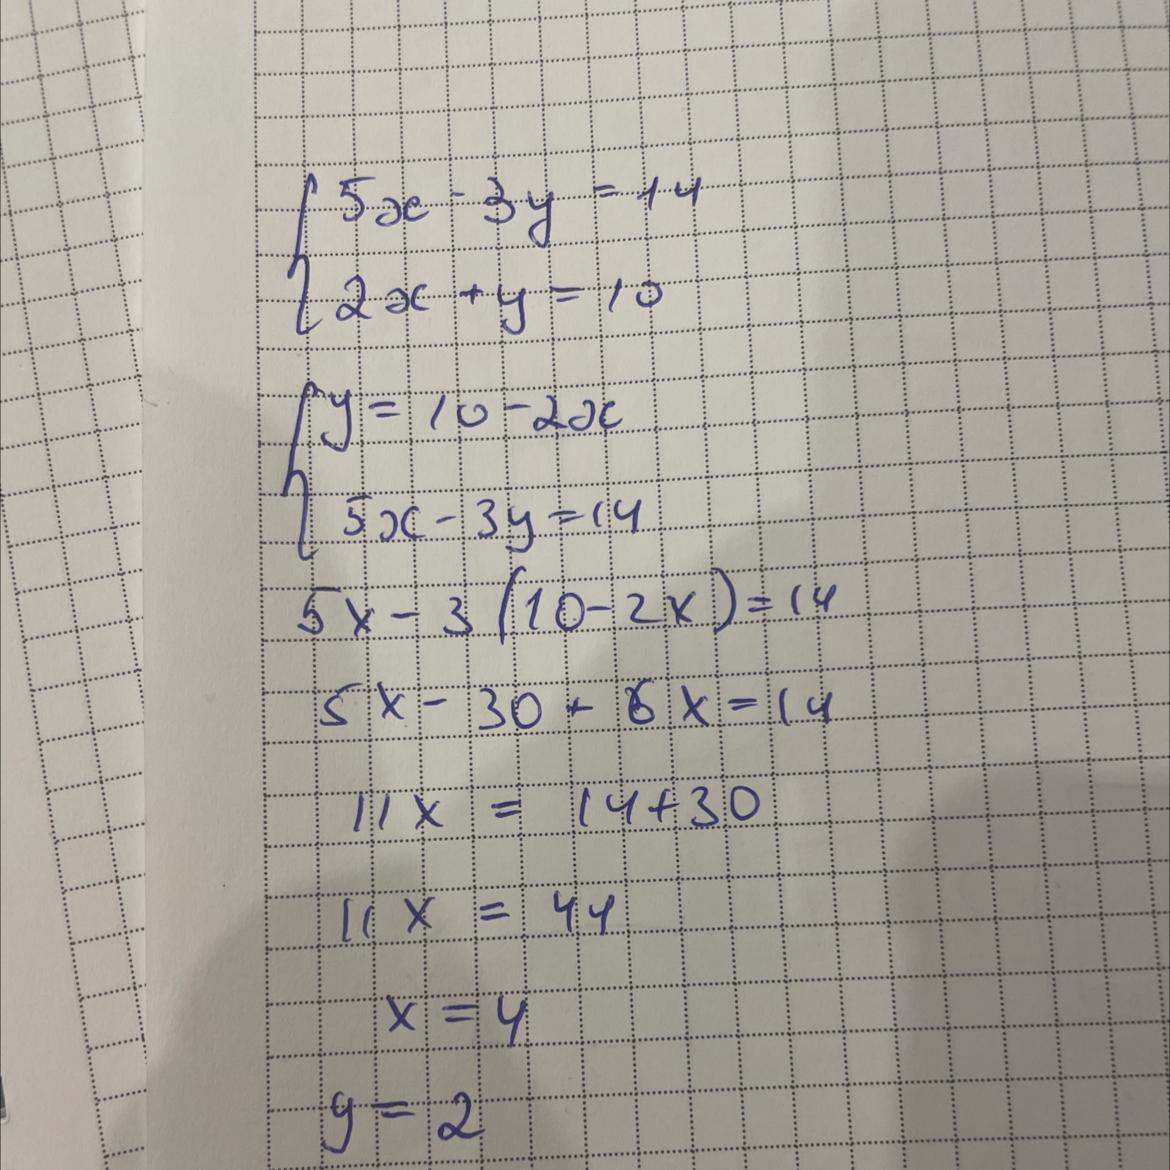 5x - 3y = 14
2x + y = 10
y = 10 - 2x
5x - 3y = 14
5x - 3(10 - 2x) = 14
5x - 30 + 6x = 14
11x = 14 + 30
11x = 44
x = 4
y = 2